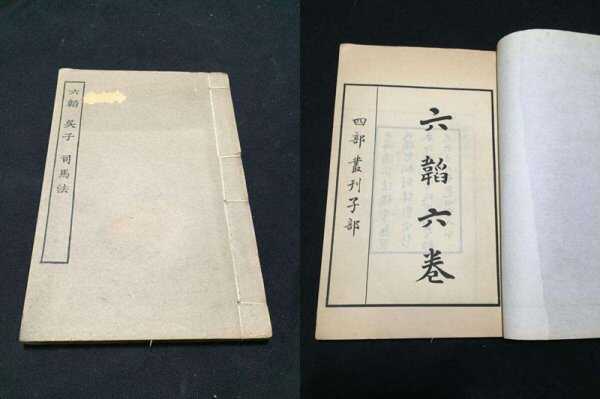 六韜 吳子 司馬法
六韜六卷
四部叢刊子部